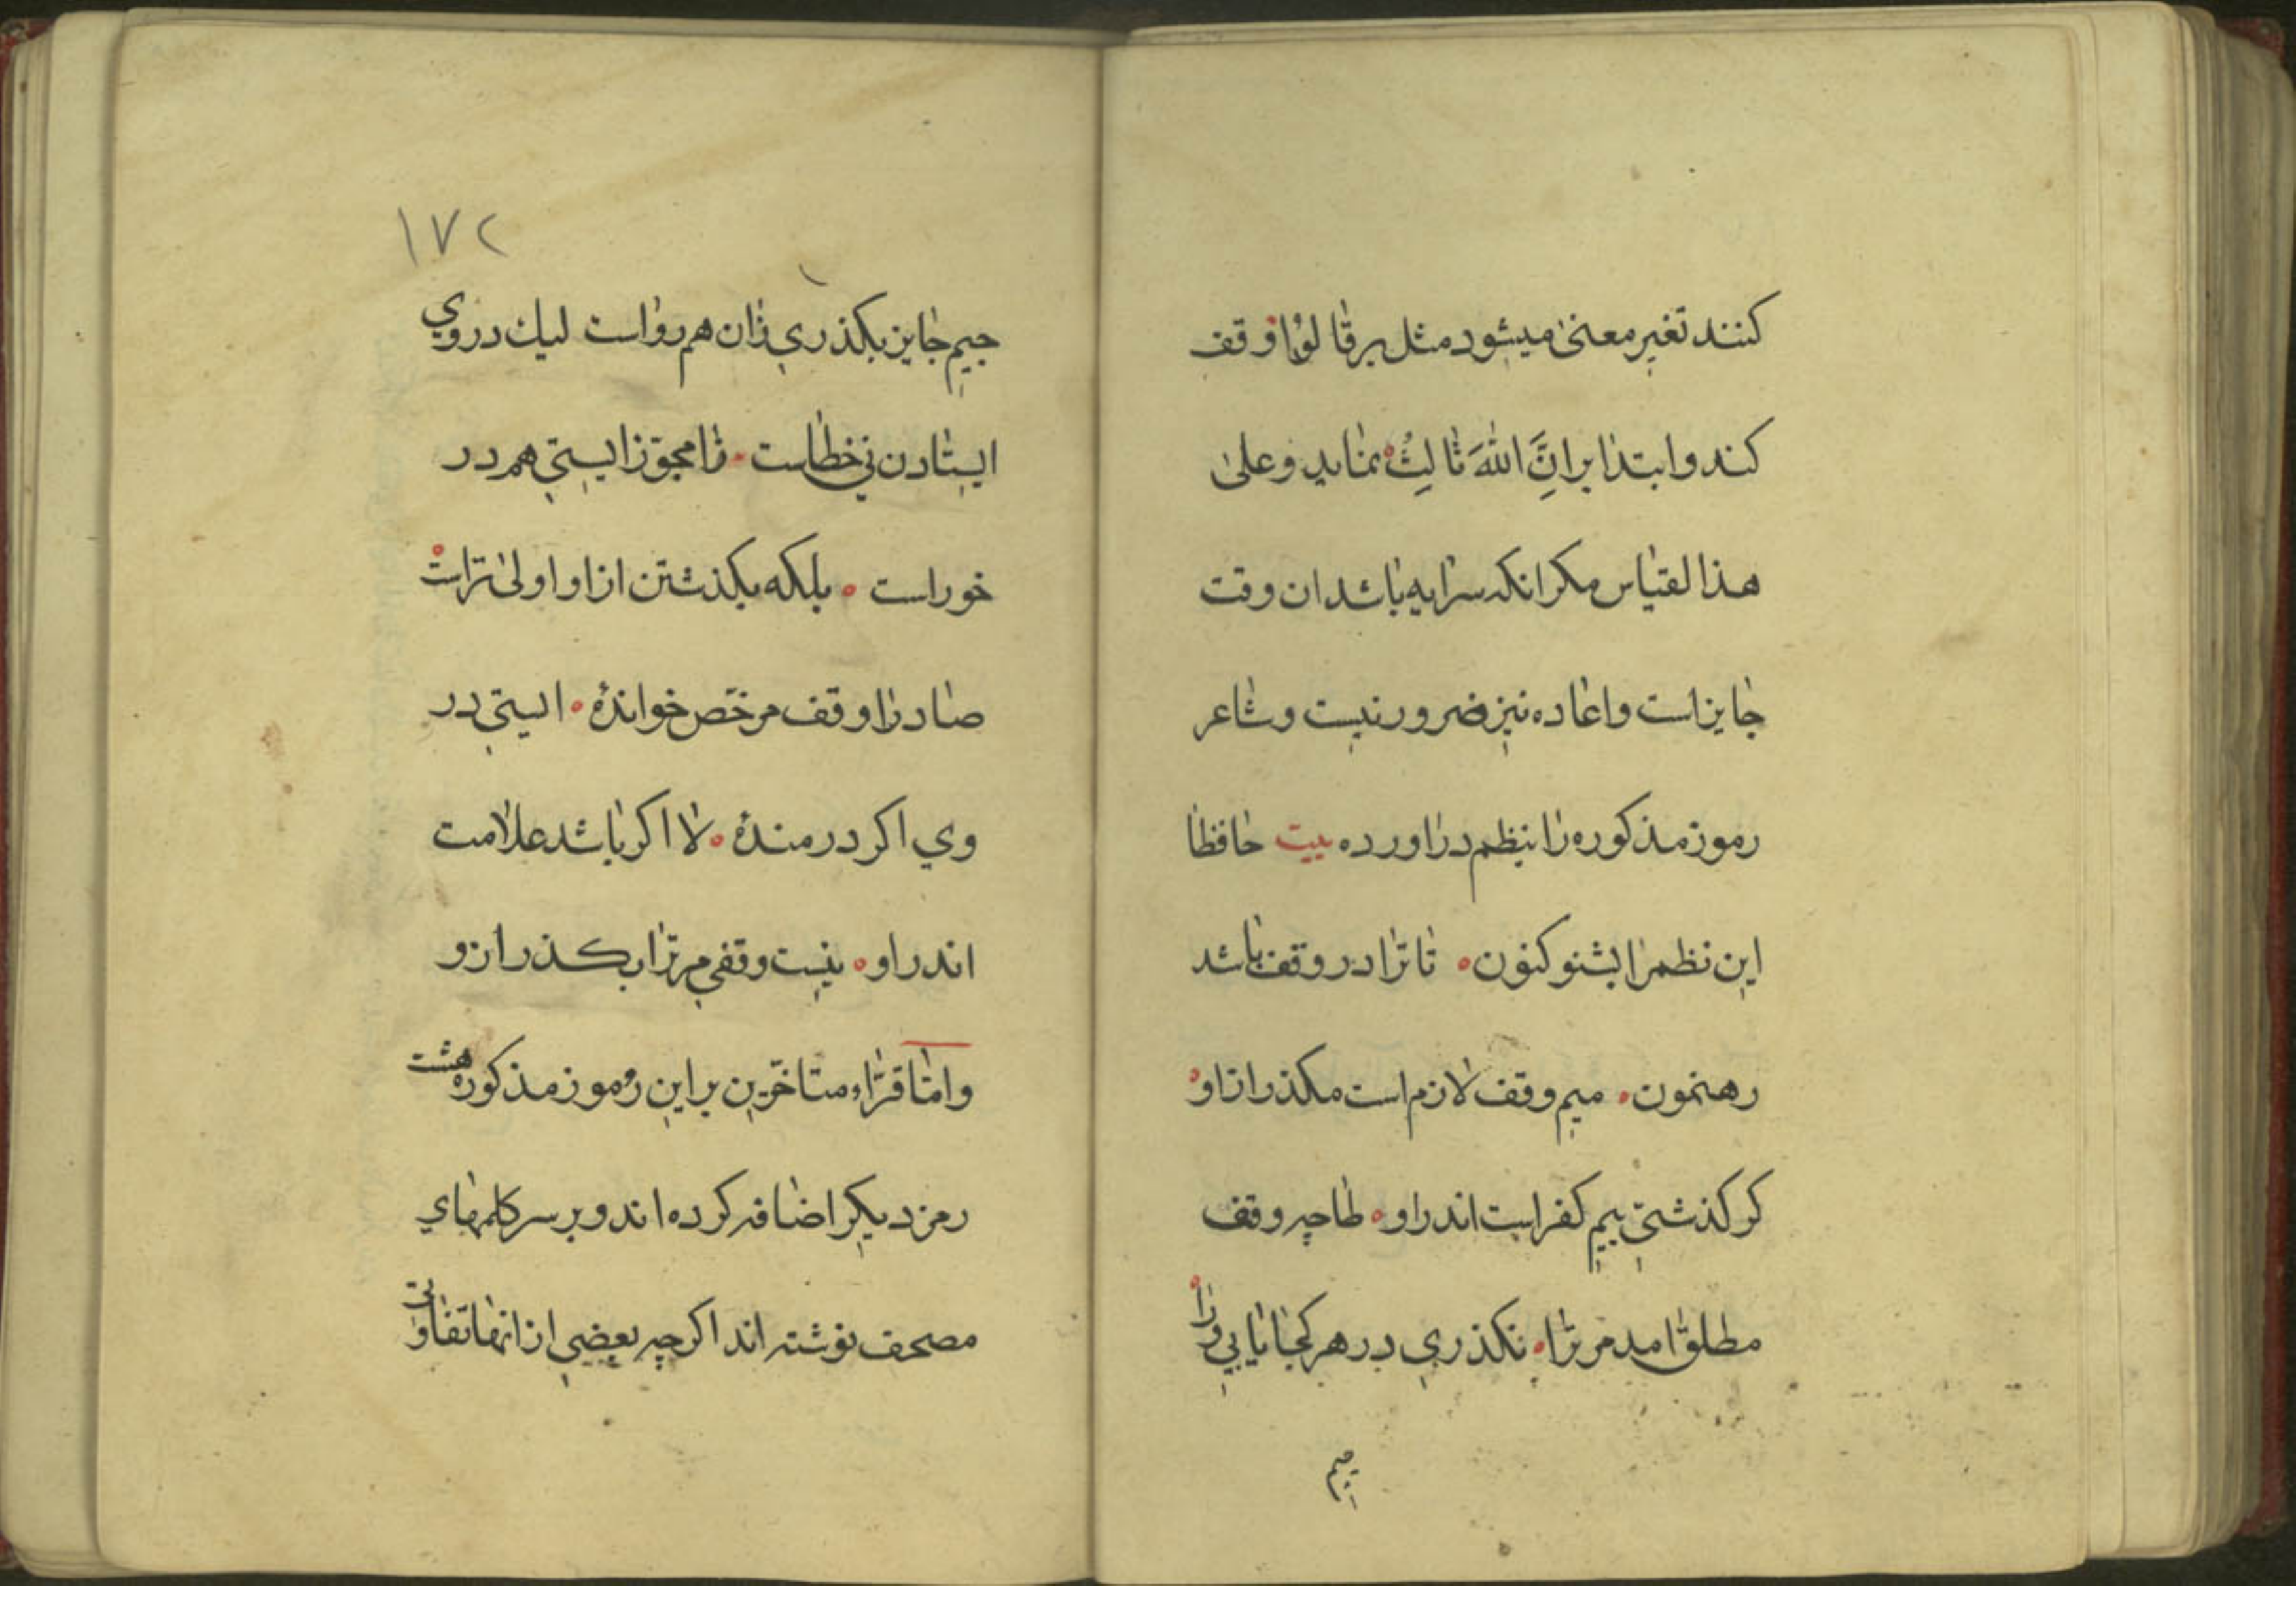 کنند تغیر معنیٰ میشود مثل بر قالُوْا وقف
کند و ابتدا بر اِنَّ اللّٰهَ ثَالِثُ نماید وعلیٰ
هذا لقیاس مکر انکه سرایه باشد ان وقت
جایز است واعاده نیز ضرور نیست وشاعر
رموز مذکوره را نبظم در اورده بیت حافظا
این نظم را بشنو کنون ۰ تا ترا در وقف باشد
رهنمون ۰ میم وقف لازم است مکذر ازاو ۰
کر کذشتی بیم کفر است اندر او ۰ طا چه وقف
مطلق امد مر ترا ۰ نکذری در هر کجا یابی ورا ۰
جیم
۱۷۲
جیم جایز بکذری زان هم رواست لیك در وی
ایستادن نی خطاست ۰ زا مجوّز ایستی هم در
خوراست ۰ بلکه بکذشتن ازاو اولیٰ تراست ۰
صاد را وقف مرخّص خوانده ۰ ایستی در
وي اکر درمندۀ ۰ لا اکر باشد علامت
اندراو ۰ نیست وقفی مر ترا بکذر ازو
وامّا قرّاء متاخّرین بر این رموز مذکوره هشت
رمز دیکر اضافه کرده اند و بر سر کلمهای
مصحف نوشته اند اکرچه بعضی از انها تفاوتی